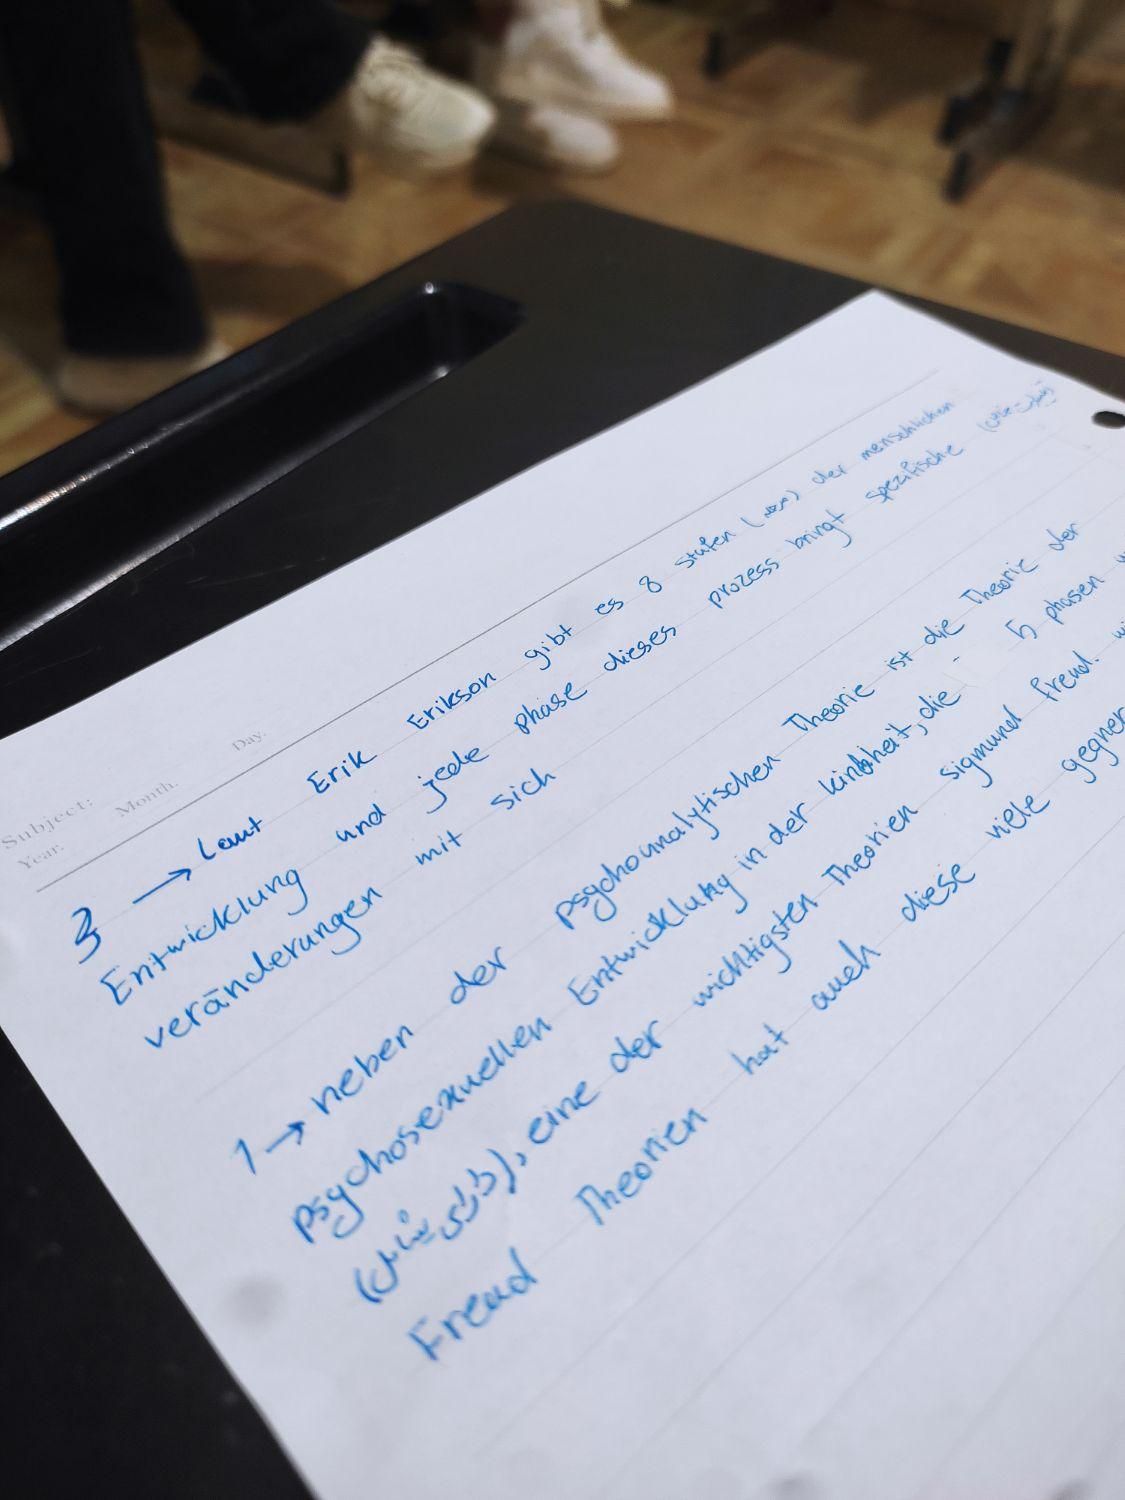 Subject:
Year. Month. Day.
3 → Laut Erik Erikson gibt es 8 stufen ( ) der menschlichen
Entwicklung und jede phase dieses prozess bringt spezifische
veränderungen mit sich
1 → neben der psychoanalytischen Theorie ist die Theorie der
psychosexuellen Entwicklung in der kindheit, die - 5 phasen
), eine der wichtigsten Theorien sigmund freud.
Freud Theorien hat auch diese viele gegner